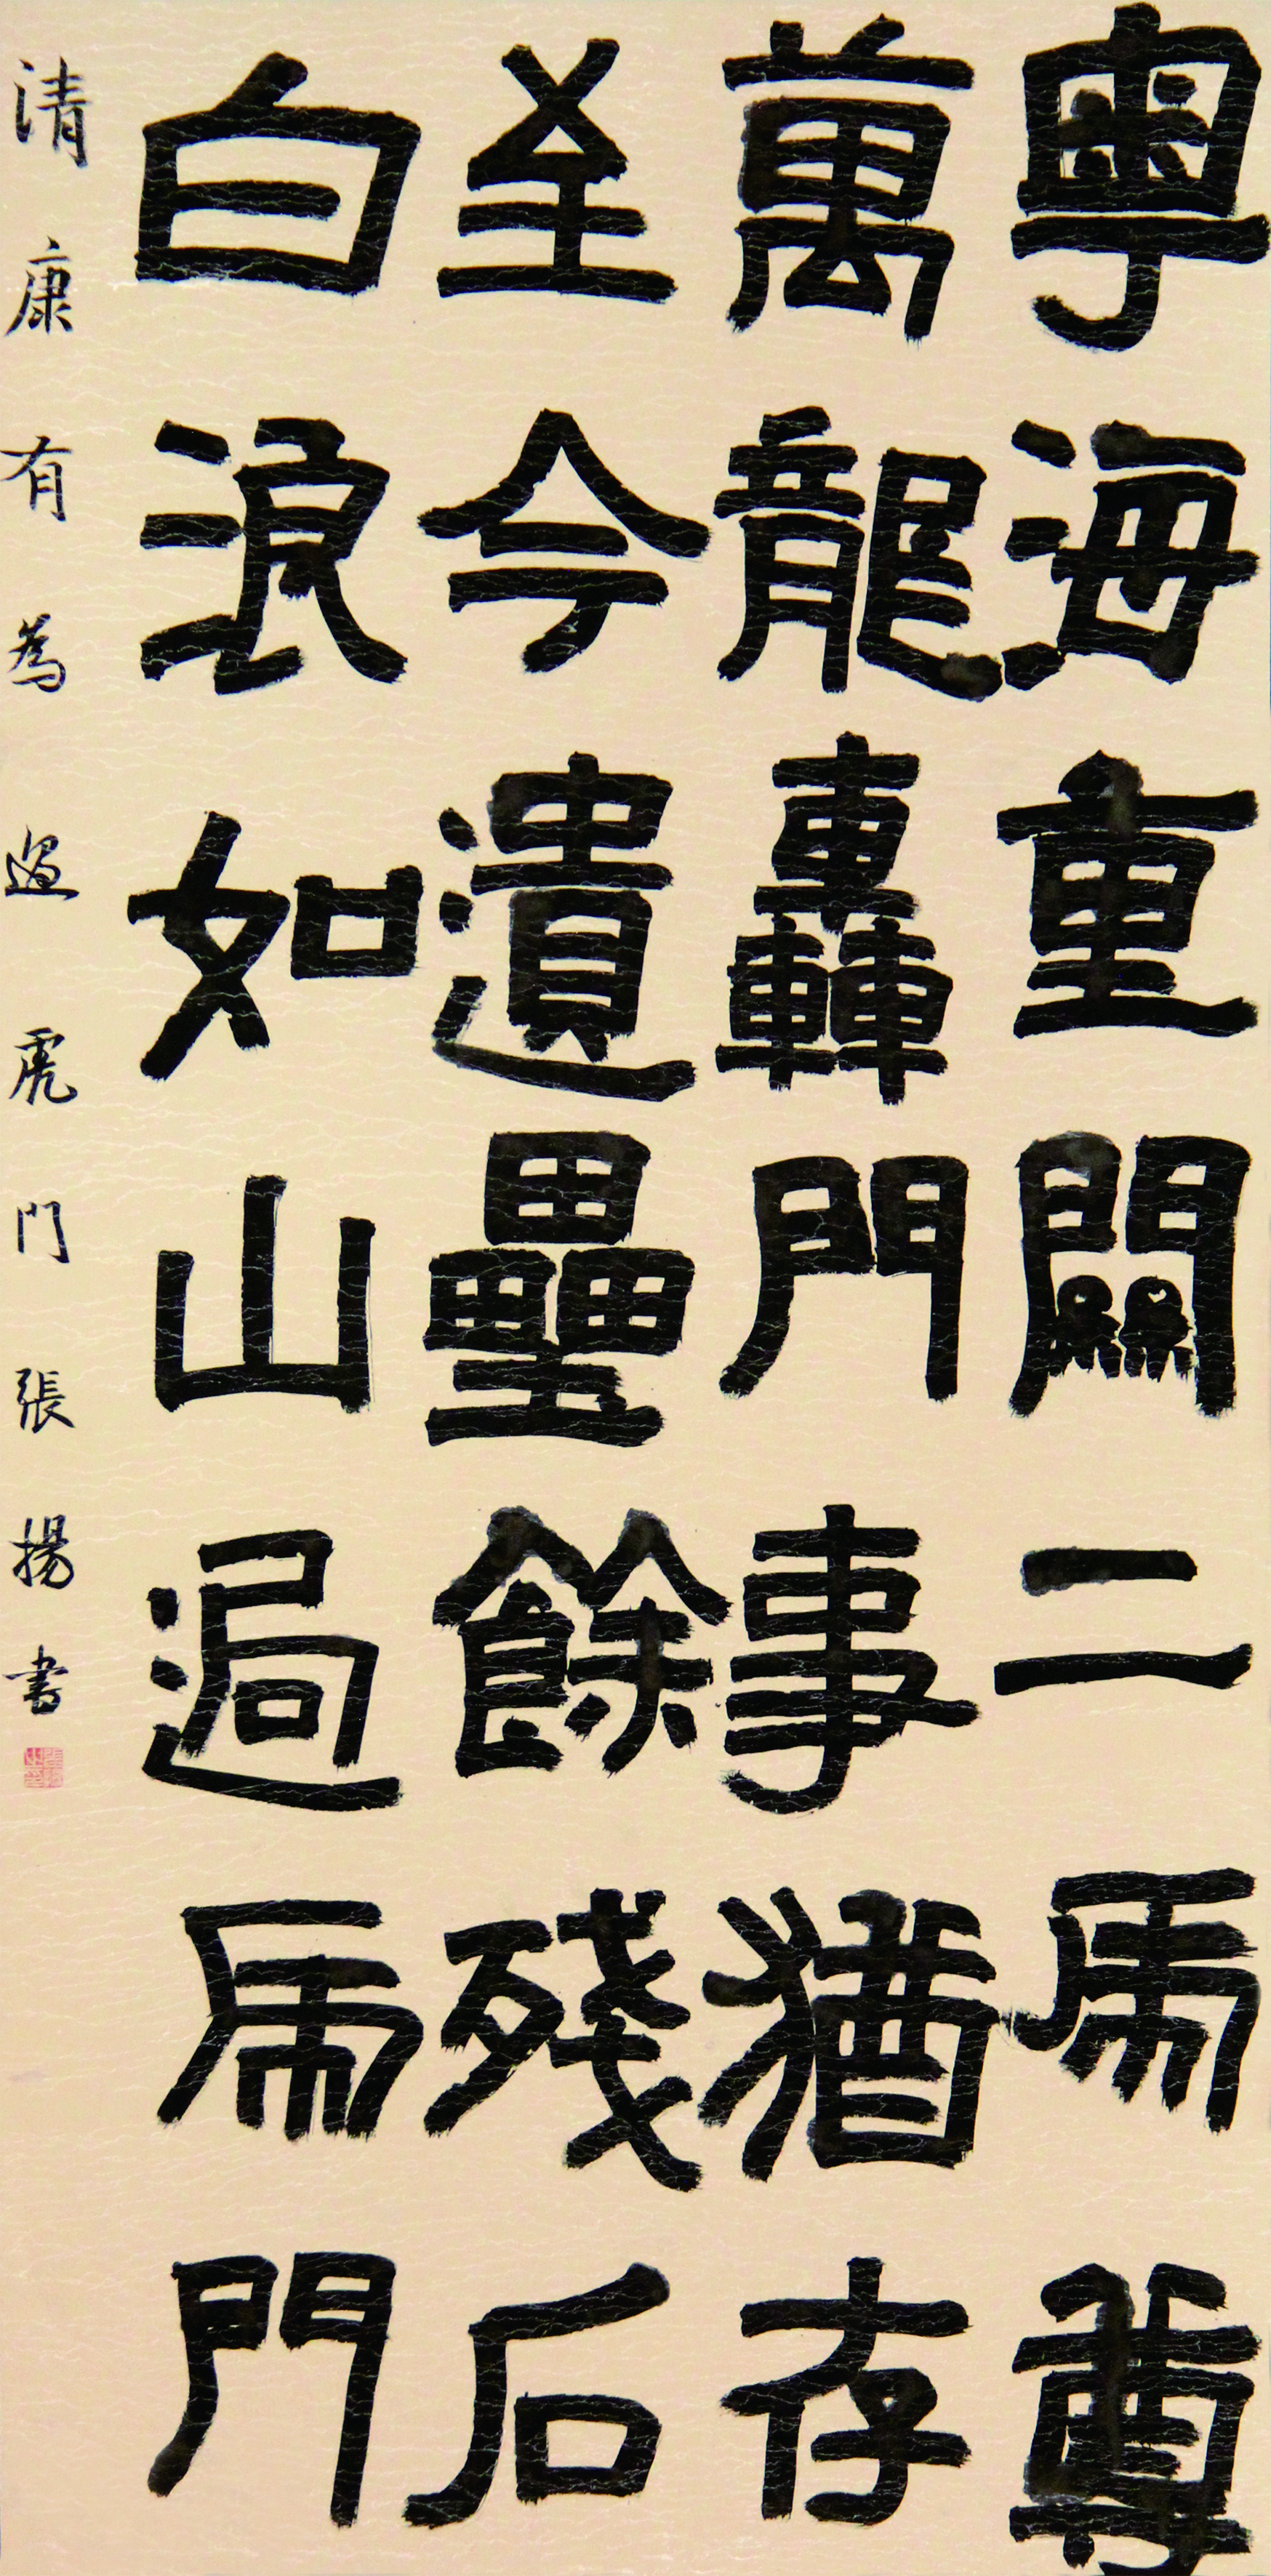 粤海重關二虎尊
萬龍轟鬥事猶存
至今遺壘餘殘石
白浪如山過虎門
清康有為過虎門張揚書